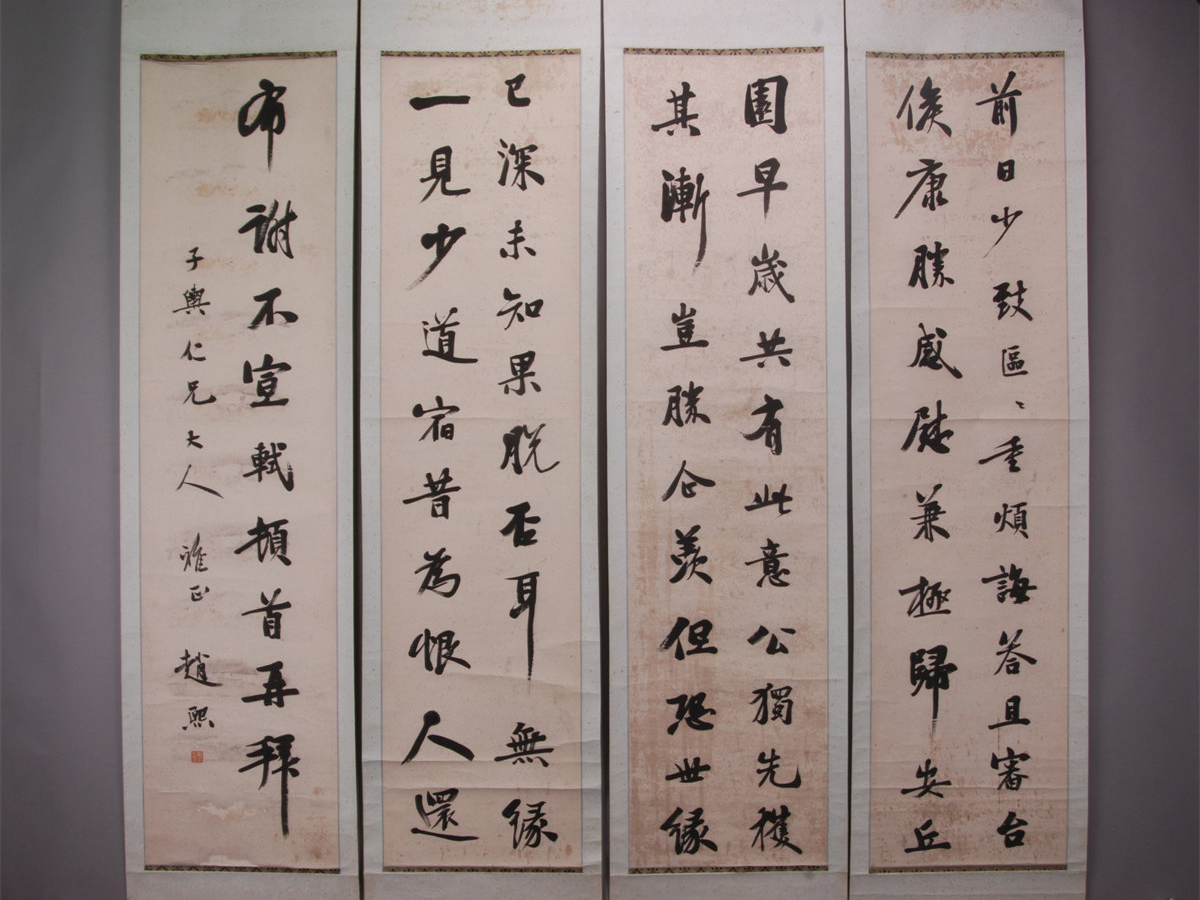 前日少致區〻重煩誨答且審台
侯康勝感慰兼極歸安丘
園早歲共有此意公獨先獲
其漸豈勝企羨但恐世緣
已深未知果脫否耳無緣
一見少道宿昔為恨人還
布謝不宣軾頓首再拜
子輿仁兄大人雅正趙熙